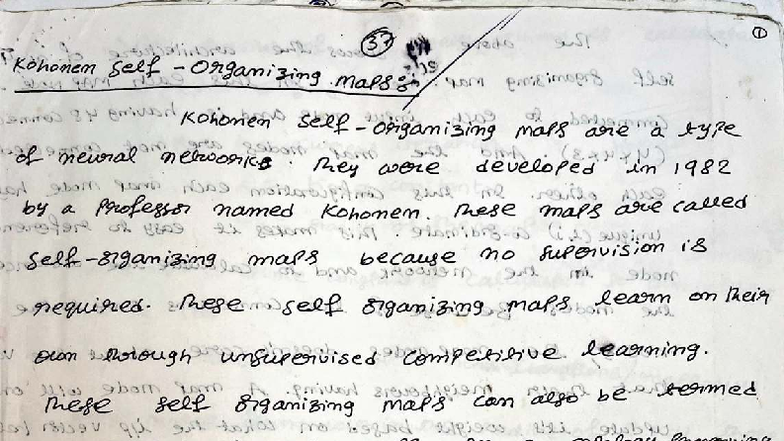 37
1
Kohonen Self-Organizing Maps:-
Kohonen Self-organizing maps are a type
of neural networks. They were developed in 1982
by a Professor named Kohonen. These maps are called
self-organizing maps because no supervision is
required. These self organizing maps learn on their
own through unsupervised competitive learning.
These self organizing maps can also be termed